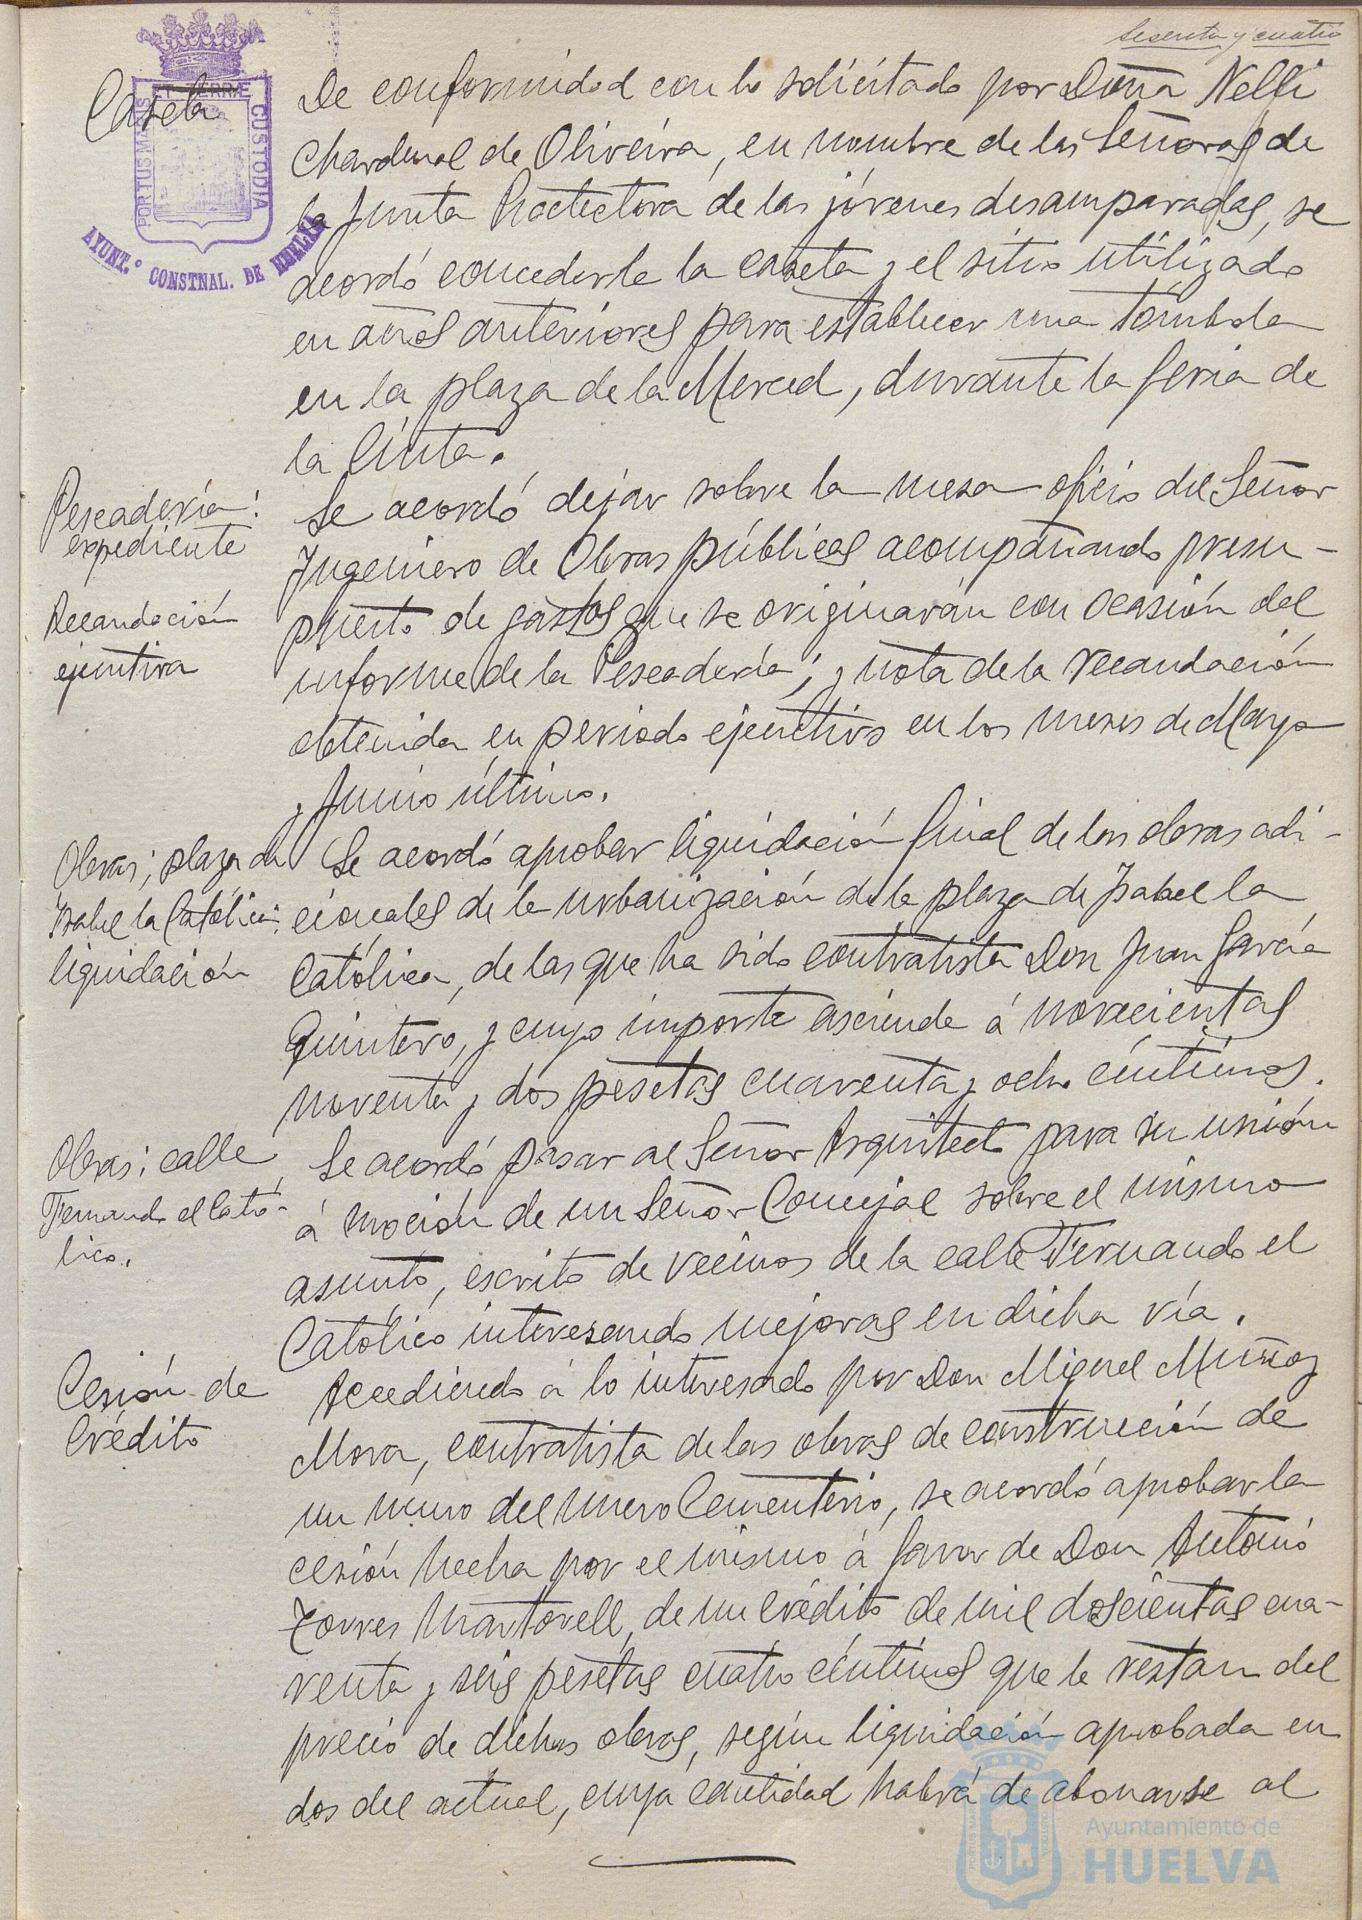 Sesenta y cuatro
ET TERRÆ
PORTUS MARIS
CUSTODIA
AYUNT.º CONSTNAL. DE HUELVA
Caseta
De conformidad con lo solicitado por Doña Nelli
Chardenal de Oliveira, en nombre de las Señoras de
la Junta Protectora de las jóvenes desamparadas, se
acordó concederle la caseta y el sitio utilizado
en años anteriores para establecer una tómbola
en la plaza de la Merced, durante la feria de
la Cinta.
Pescadería:
expediente
Recaudación
ejecutiva
Se acordó dejar sobre la mesa oficio del Señor
Ingeniero de Obras públicas acompañando presu-
puesto de gastos que se originarán con ocasión del
informe de la Pescadería; y nota de la recaudación
obtenida en periodo ejecutivo en los meses de Mayo
y Junio último.
Obras; plaza de
Isabel la Católica:
liquidación
Se acordó aprobar liquidación final de las obras adi-
cionales de la urbanización de la plaza de Isabel la
Católica, de las que ha sido contratista Don Juan García
Quintero, y cuyo importe asciende á novecientas
noventa y dos pesetas cuarenta y ocho céntimos.
Obras: calle
Fernando el Cató-
lico.
Se acordó pasar al Señor Arquitecto para su unión
á moción de un Señor Concejal sobre el mismo
asunto, escrito de vecinos de la calle Fernando el
Católico interesando mejoras en dicha vía.
Cesión de
Crédito
Accediendo á lo interesado por Don Miguel Muñoz
Mora, contratista de las obras de construcción de
un muro del nuevo Cementerio, se acordó aprobar la
cesión hecha por el mismo á favor de Don Antonio
Torres Martorell, de un crédito de mil doscientas cua-
renta y seis pesetas cuatro céntimos que le restan del
precio de dichas obras, según liquidación aprobada en
dos del actual, cuya cantidad habrá de abonarse al
Ayuntamiento de
HUELVA